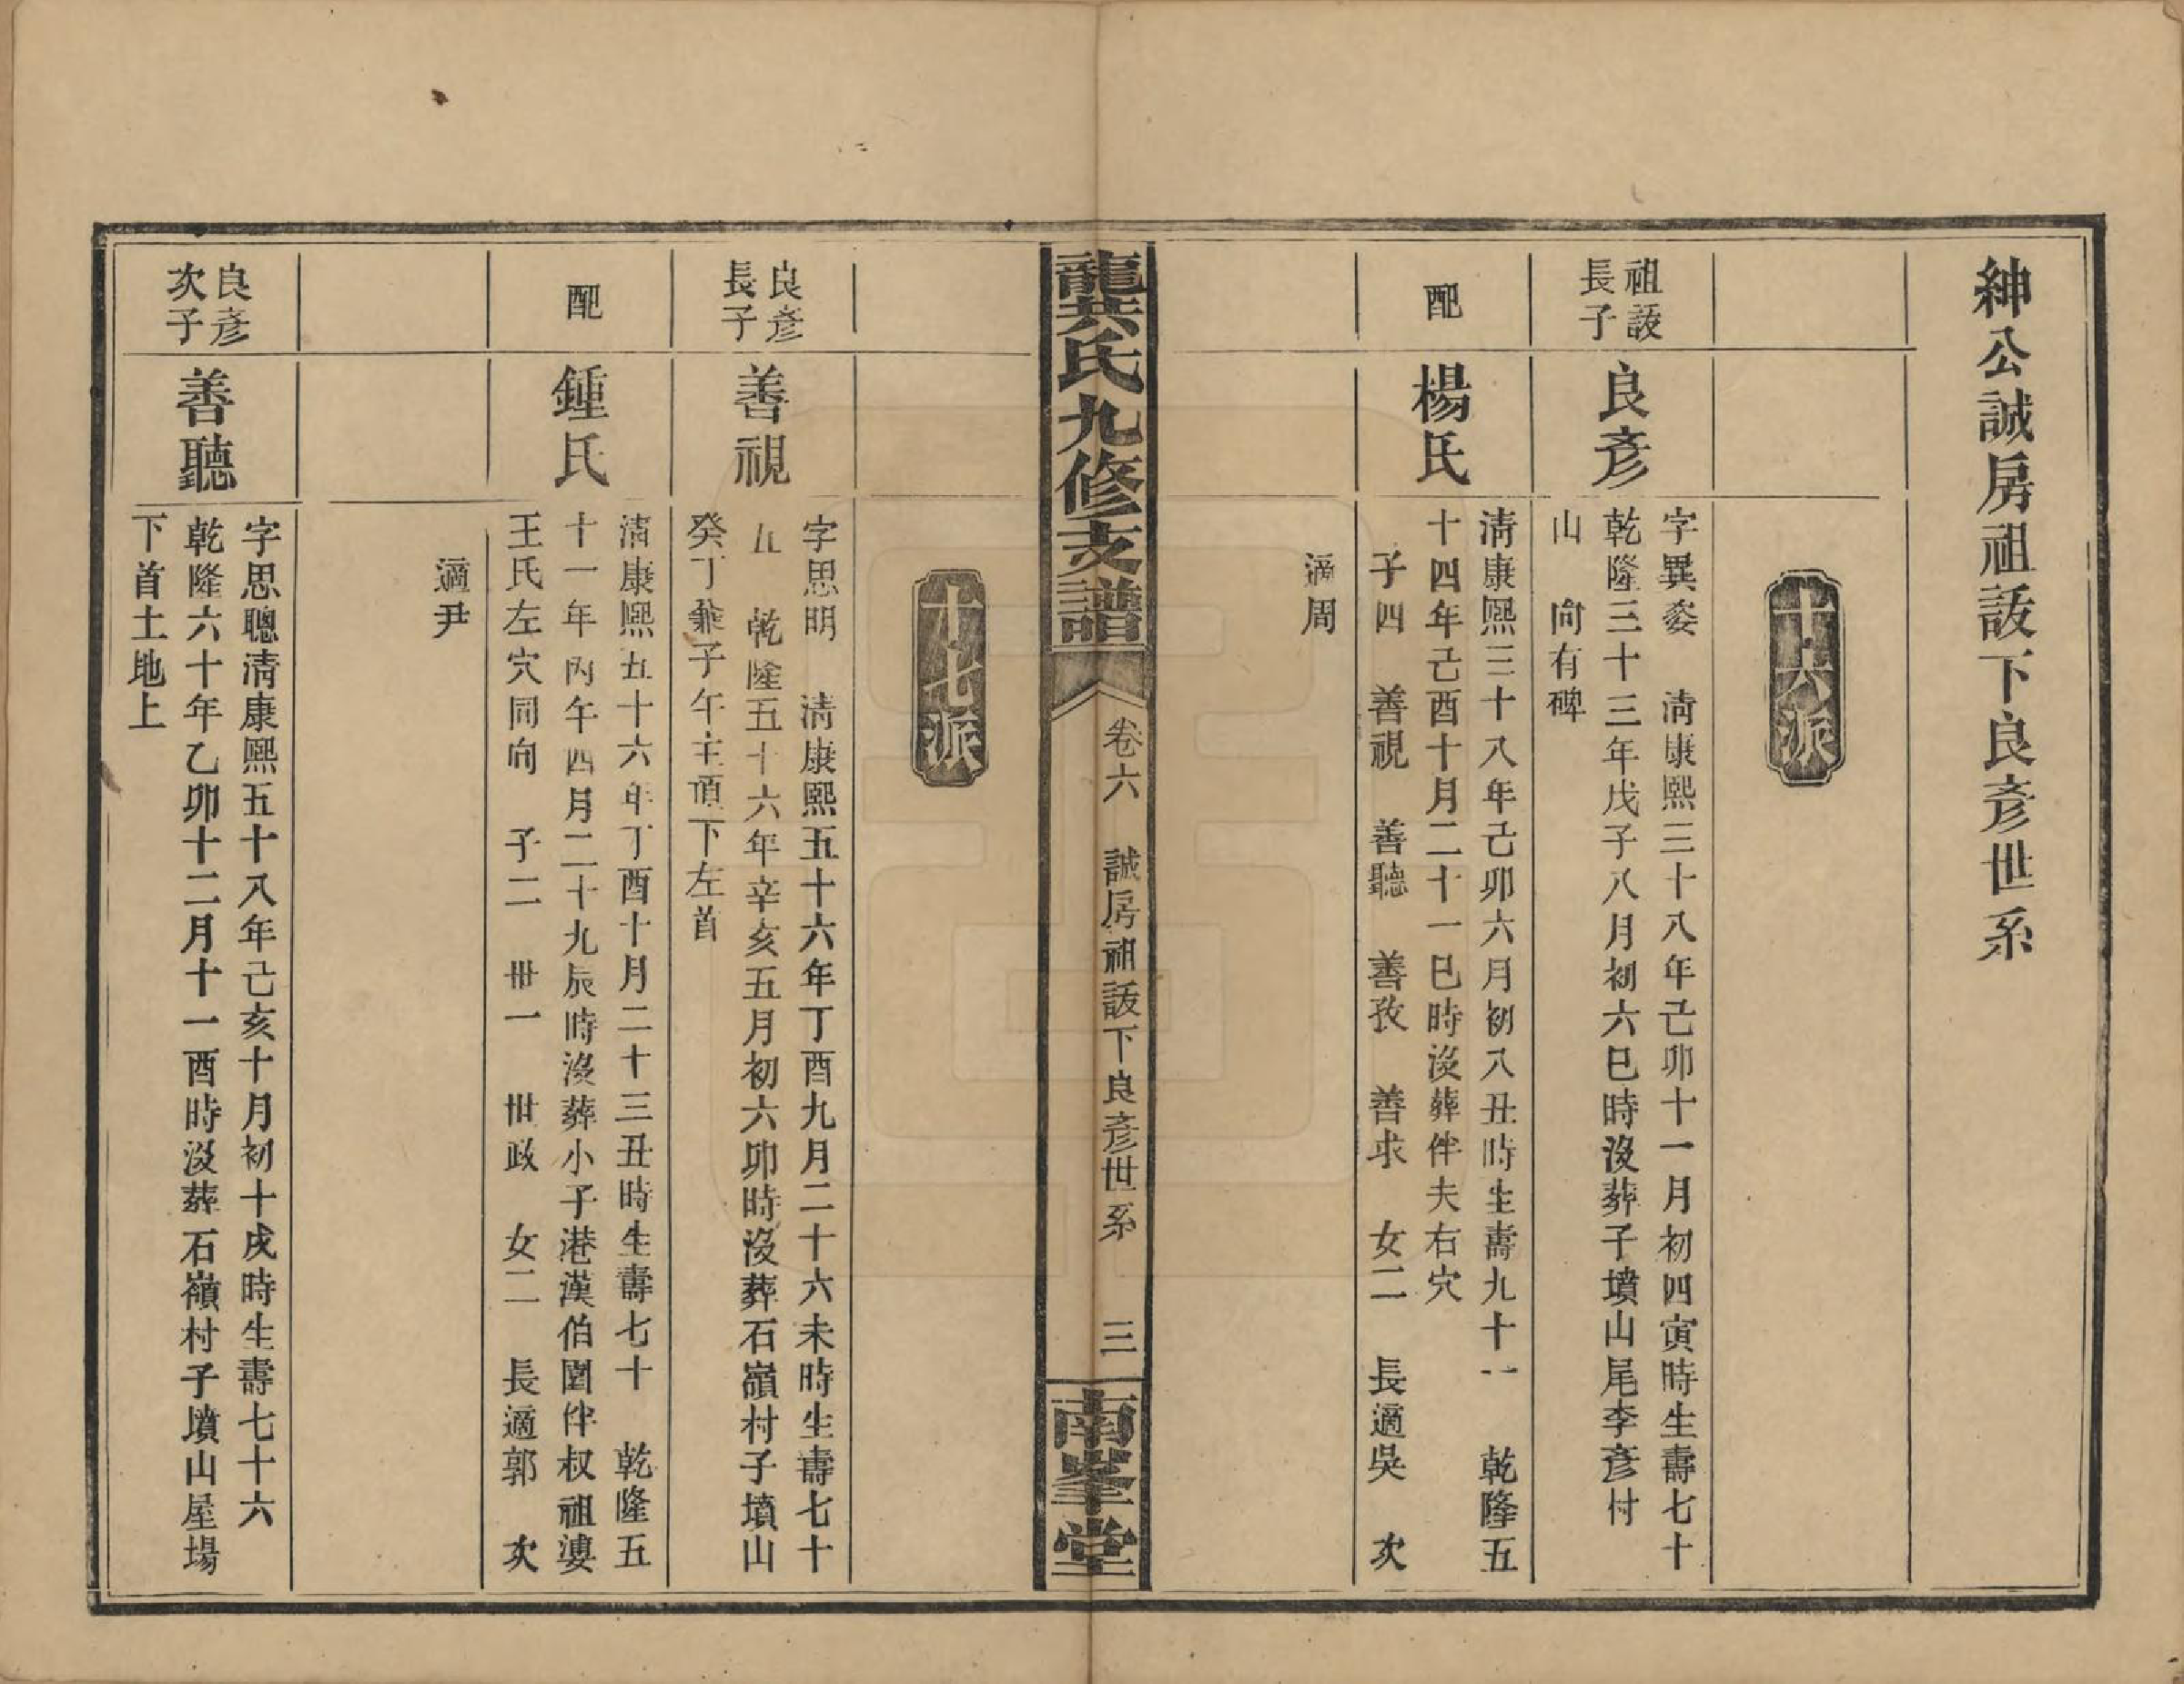 紳公誠房祖詼下良彥世系
十六派
祖詼
長子
良彥
字異姿　清康熙三十八年己卯十一月初四寅時生壽七十
乾隆三十三年戊子八月初六巳時沒葬子墳山尾李彥村
山　向有碑
配
楊氏
清康熙三十八年己卯六月初八丑時生壽九十一　乾隆五
十四年己酉十月二十一巳時沒葬伴夫右穴
子四　善視　善聽　善孜　善求　女二　長適吳　次
適周
龔氏九修支譜
卷六　誠房祖詼下良彥世系　三
南峯堂
十七派
良彥
長子
善視
字思明　清康熙五十六年丁酉九月二十六未時生壽七十
五　乾隆五十六年辛亥五月初六卯時沒葬石嶺村子墳山
癸丁兼子午主頂下左首
配
鍾氏
清康熙五十六年丁酉十月二十三丑時生壽七十　乾隆五
十一年丙午四月二十九辰時沒葬小子港漢伯園伴叔祖婆
王氏左穴同向　子二　世一　世政　女二　長適郭　次
適尹
良彥
次子
善聽
字思聰清康熙五十八年己亥十月初十戌時生壽七十六
乾隆六十年乙卯十二月十一酉時沒葬石嶺村子墳山屋場
下首土地上